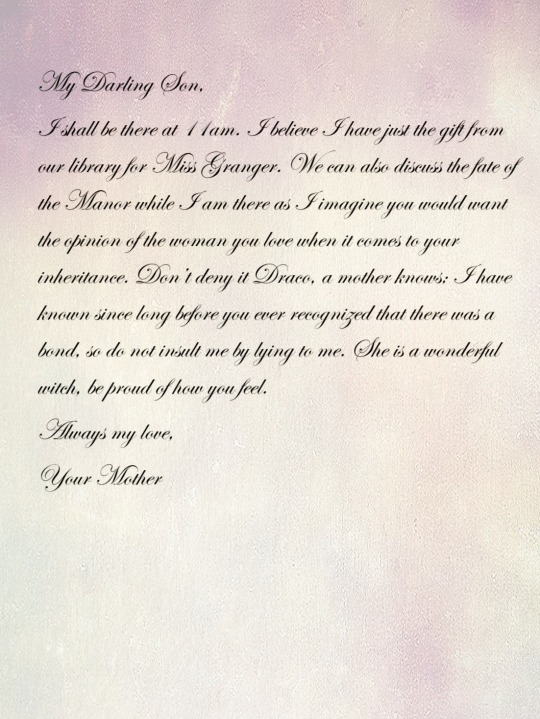 My Darling Son,
I shall be there at 11am. I believe I have just the gift from
our library for Miss Granger. We can also discuss the fate of
the Manor while I am there as I imagine you would want
the opinion of the woman you love when it comes to your
inheritance. Don't deny it Draco, a mother knows; I have
known since long before you ever recognized that there was a
bond, so do not insult me by lying to me. She is a wonderful
witch, be proud of how you feel.
Always my love,
Your Mother